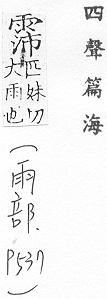 四聲篇海
霈
匹妹切
大雨也
(雨部. P537)